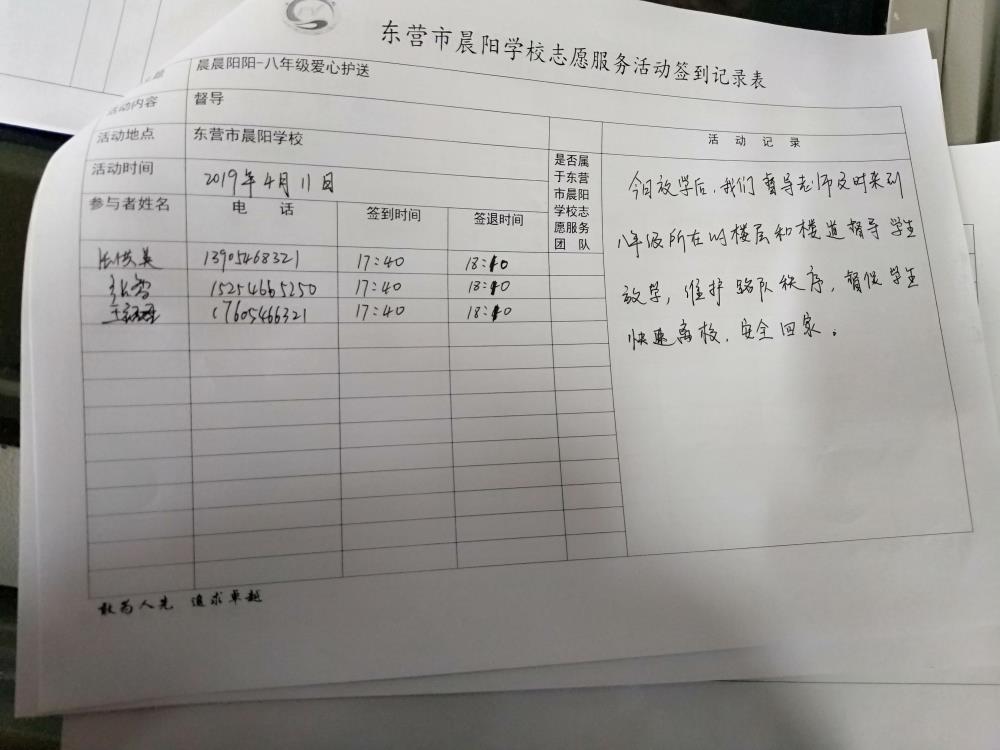 东营市晨阳学校志愿服务活动签到记录表
题 晨晨阳阳-八年级爱心护送
活动内容 督导
活动地点 东营市晨阳学校
活动时间 2019年4月11日
参与者姓名 电 话 签到时间 签退时间
是否属
于东营
市晨阳
学校志
愿服务
团 队
13905468321 17:40 18:10
15254665250 17:40 18:10
17605466321 17:40 18:10
活 动 记 录
今日放学后,我们督导老师及时来到
八年级所在的楼层和楼道督导学生
放学,维护路队秩序,督促学生
快速离校,安全回家。
敢为人先 追求卓越